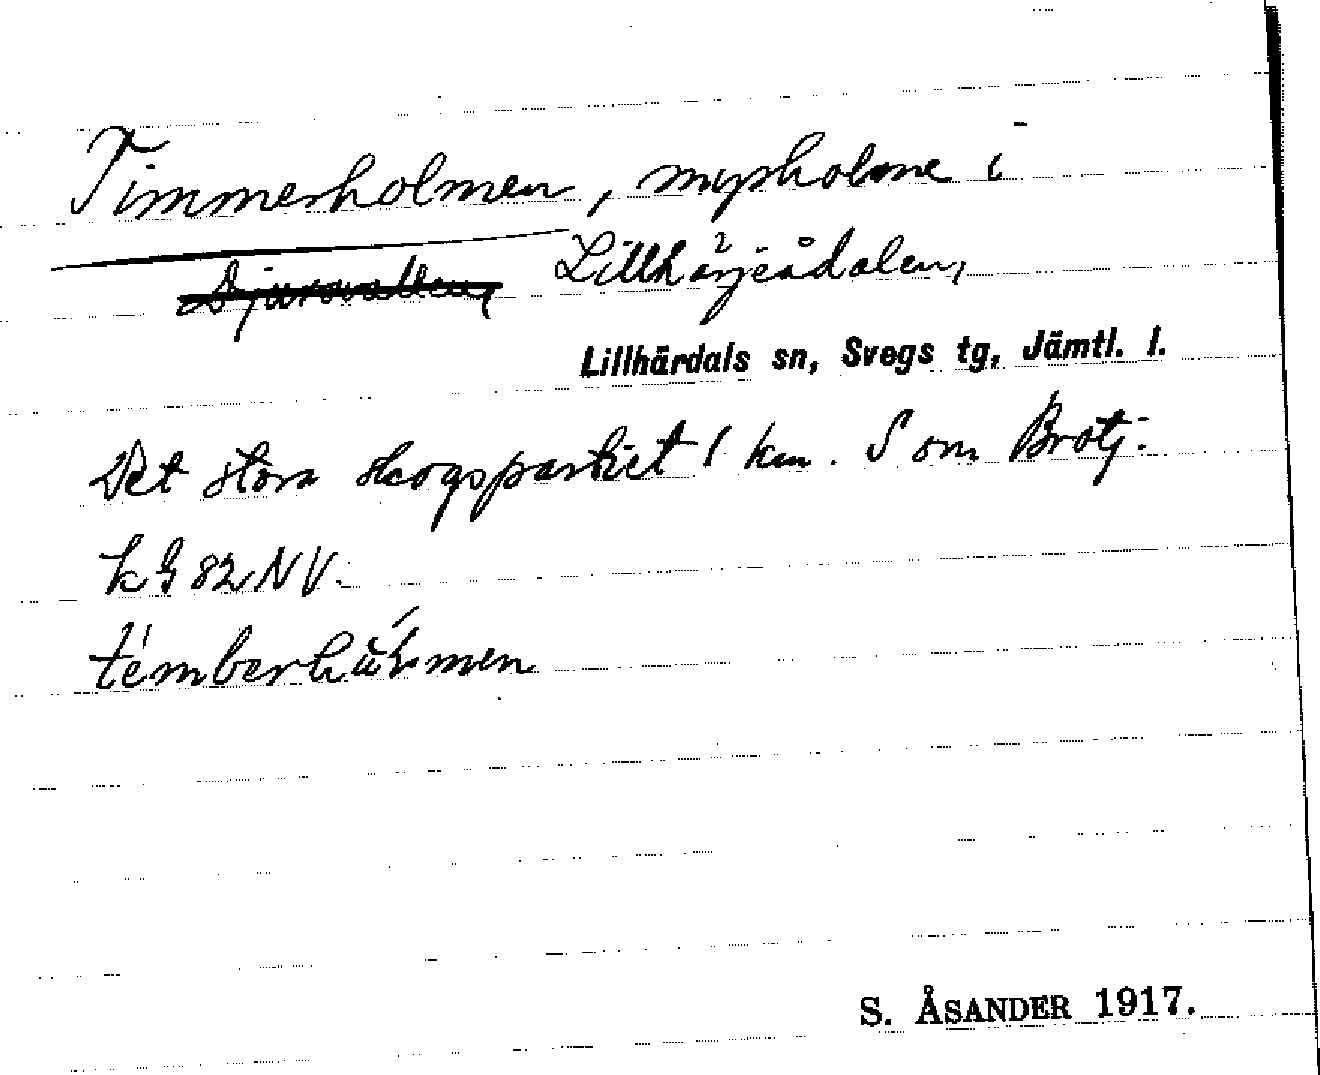 Timmerholmen, myrholme i
Djursvallen, Lillhärjeådalen,
Lillhärdals sn, Svegs tg, Jämtl. l.
Det stora skogspartiet 1 km. S om Brotj.
kg 82 NV.
S. ÅSANDER 1917.